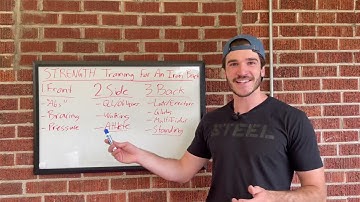 STRENGTH Training for An Iron Back
1 Front 2 Side 3 Back
- "Abs" - QL/Obliques - Lats/Erectors
- Bracing - Walking - Glutes
- Pressure - Athlete - Multifidus
- Standing
STEEL